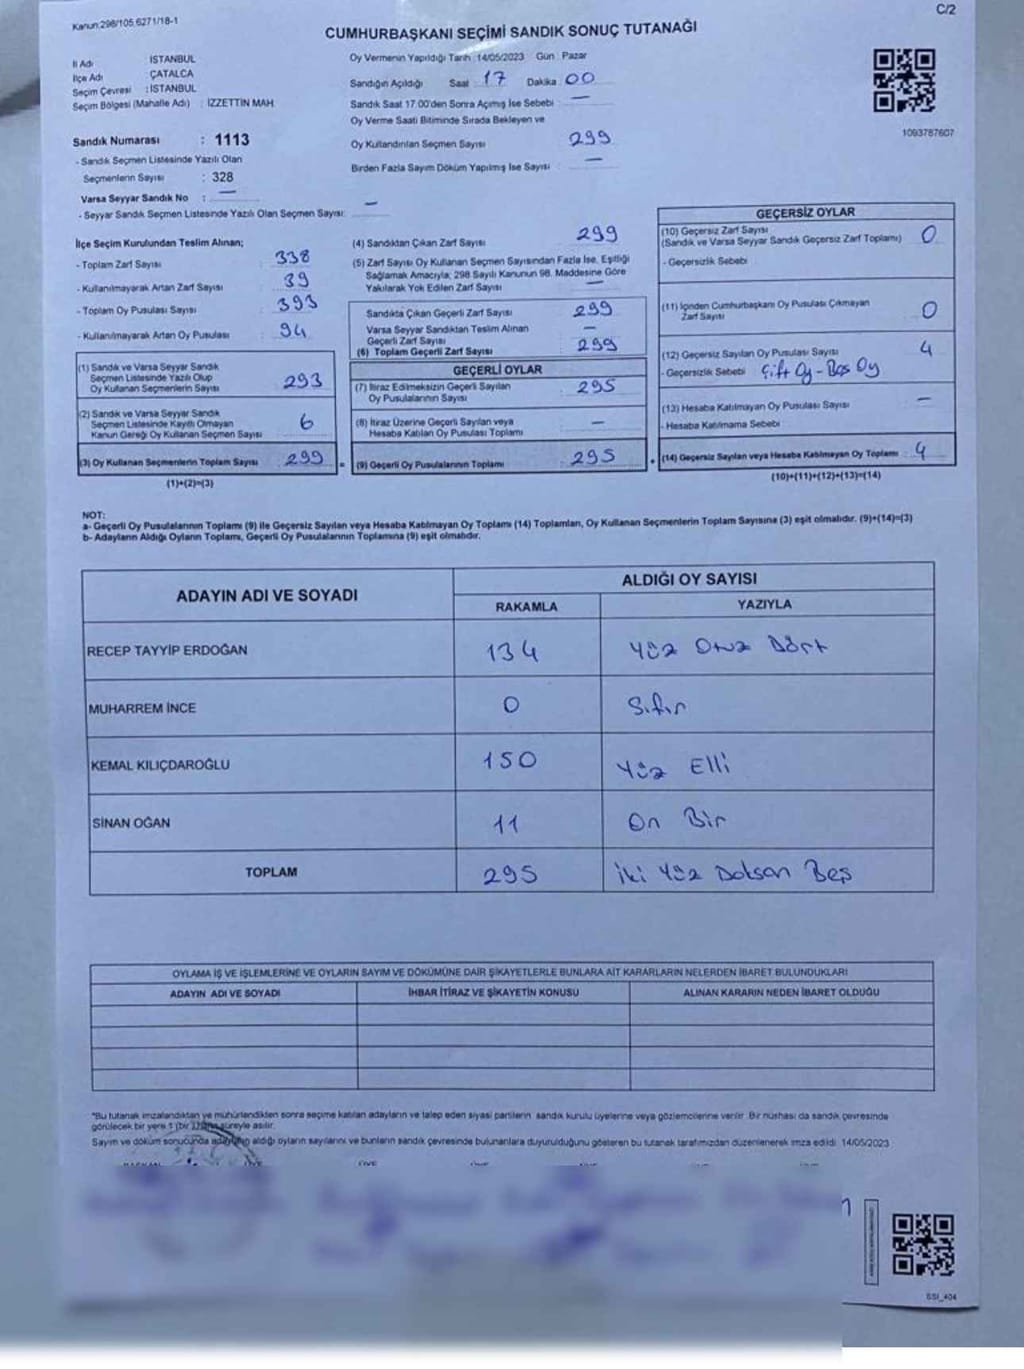 Kanun:298/105,6271/18-1
C/2
CUMHURBAŞKANI SEÇİMİ SANDIK SONUÇ TUTANAĞI
İl Adı : İSTANBUL
İlçe Adı : ÇATALCA
Seçim Çevresi : İSTANBUL
Seçim Bölgesi (Mahalle Adı) : İZZETTİN MAH.
Oy Vermenin Yapıldığı Tarih : 14/05/2023 Gün : Pazar
Sandığın Açıldığı Saat : 17 Dakika : 00
Sandık Saat 17.00'den Sonra Açımış İse Sebebi : —
Oy Verme Saati Bitiminde Sırada Bekleyen ve
Oy Kullandırılan Seçmen Sayısı 299
Birden Fazla Sayım Döküm Yapılmış İse Sayısı : —
1093787607
Sandık Numarası : 1113
- Sandık Seçmen Listesinde Yazılı Olan
Seçmenlerin Sayısı : 328
Varsa Seyyar Sandık No : —
- Seyyar Sandık Seçmen Listesinde Yazılı Olan Seçmen Sayısı: —
İlçe Seçim Kurulundan Teslim Alınan;
- Toplam Zarf Sayısı : 338
- Kullanılmayarak Artan Zarf Sayısı : 39
- Toplam Oy Pusulası Sayısı : 393
- Kullanılmayarak Artan Oy Pusulası : 94
(1) Sandık ve Varsa Seyyar Sandık
Seçmen Listesinde Yazılı Olup
Oy Kullanan Seçmenlerin Sayısı : 293
(2) Sandık ve Varsa Seyyar Sandık
Seçmen Listesinde Kayıtlı Olmayan
Kanun Gereği Oy Kullanan Seçmen Sayısı : 6
(3) Oy Kullanan Seçmenlerin Toplam Sayısı : 299
(1)+(2)=(3)
(4) Sandıktan Çıkan Zarf Sayısı : 299
(5) Zarf Sayısı Oy Kullanan Seçmen Sayısından Fazla İse, Eşitliği
Sağlamak Amacıyla; 298 Sayılı Kanunun 98. Maddesine Göre
Yakılarak Yok Edilen Zarf Sayısı : —
Sandıkta Çıkan Geçerli Zarf Sayısı : 299
Varsa Seyyar Sandıktan Teslim Alınan
Geçerli Zarf Sayısı : —
(6) Toplam Geçerli Zarf Sayısı : 299
GEÇERLİ OYLAR
(7) İtiraz Edilmeksizin Geçerli Sayılan
Oy Pusulalarının Sayısı : 295
(8) İtiraz Üzerine Geçerli Sayılan veya
Hesaba Katılan Oy Pusulası Toplamı : —
= (9) Geçerli Oy Pusulalarının Toplamı : 295
GEÇERSİZ OYLAR
(10) Geçersiz Zarf Sayısı
(Sandık ve Varsa Seyyar Sandık Geçersiz Zarf Toplamı) : 0
- Geçersizlik Sebebi :
(11) İçinden Cumhurbaşkanı Oy Pusulası Çıkmayan
Zarf Sayısı : 0
(12) Geçersiz Sayılan Oy Pusulası Sayısı : 4
- Geçersizlik Sebebi : Çift Oy - Boş Oy
(13) Hesaba Katılmayan Oy Pusulası Sayısı : —
- Hesaba Katılmama Sebebi :
+ (14) Geçersiz Sayılan veya Hesaba Katılmayan Oy Toplamı : 4
(10)+(11)+(12)+(13)=(14)
NOT:
a- Geçerli Oy Pusulalarının Toplamı (9) ile Geçersiz Sayılan veya Hesaba Katılmayan Oy Toplamı (14) Toplamları, Oy Kullanan Seçmenlerin Toplam Sayısına (3) eşit olmalıdır. (9)+(14)=(3)
b- Adayların Aldığı Oyların Toplamı, Geçerli Oy Pusulalarının Toplamına (9) eşit olmalıdır.
ADAYIN ADI VE SOYADI
ALDIĞI OY SAYISI
RAKAMLA YAZIYLA
RECEP TAYYİP ERDOĞAN 134 Yüz Otuz Dört
MUHARREM İNCE 0 Sıfır
KEMAL KILIÇDAROĞLU 150 Yüz Elli
SİNAN OĞAN 11 On Bir
TOPLAM 295 İki Yüz Doksan Beş
OYLAMA İŞ VE İŞLEMLERİNE VE OYLARIN SAYIM VE DÖKÜMÜNE DAİR ŞİKAYETLERLE BUNLARA AİT KARARLARIN NELERDEN İBARET BULUNDUKLARI
ADAYIN ADI VE SOYADI İHBAR İTİRAZ VE ŞİKAYETİN KONUSU ALINAN KARARIN NEDEN İBARET OLDUĞU
*Bu tutanak imzalandıktan ve mühürlendikten sonra seçime katılan adayların ve talep eden siyasi partilerin sandık kurulu üyelerine veya gözlemcilerine verilir. Bir nüshası da sandık çevresinde
görülecek bir yere 1 (bir) hafta süreyle asılır.
Sayım ve döküm sonucunda adayların aldığı oyların sayılarını ve bunların sandık çevresinde bulunanlara duyurulduğunu gösteren bu tutanak tarafımızdan düzenlenerek imza edildi. 14/05/2023
SSI_404